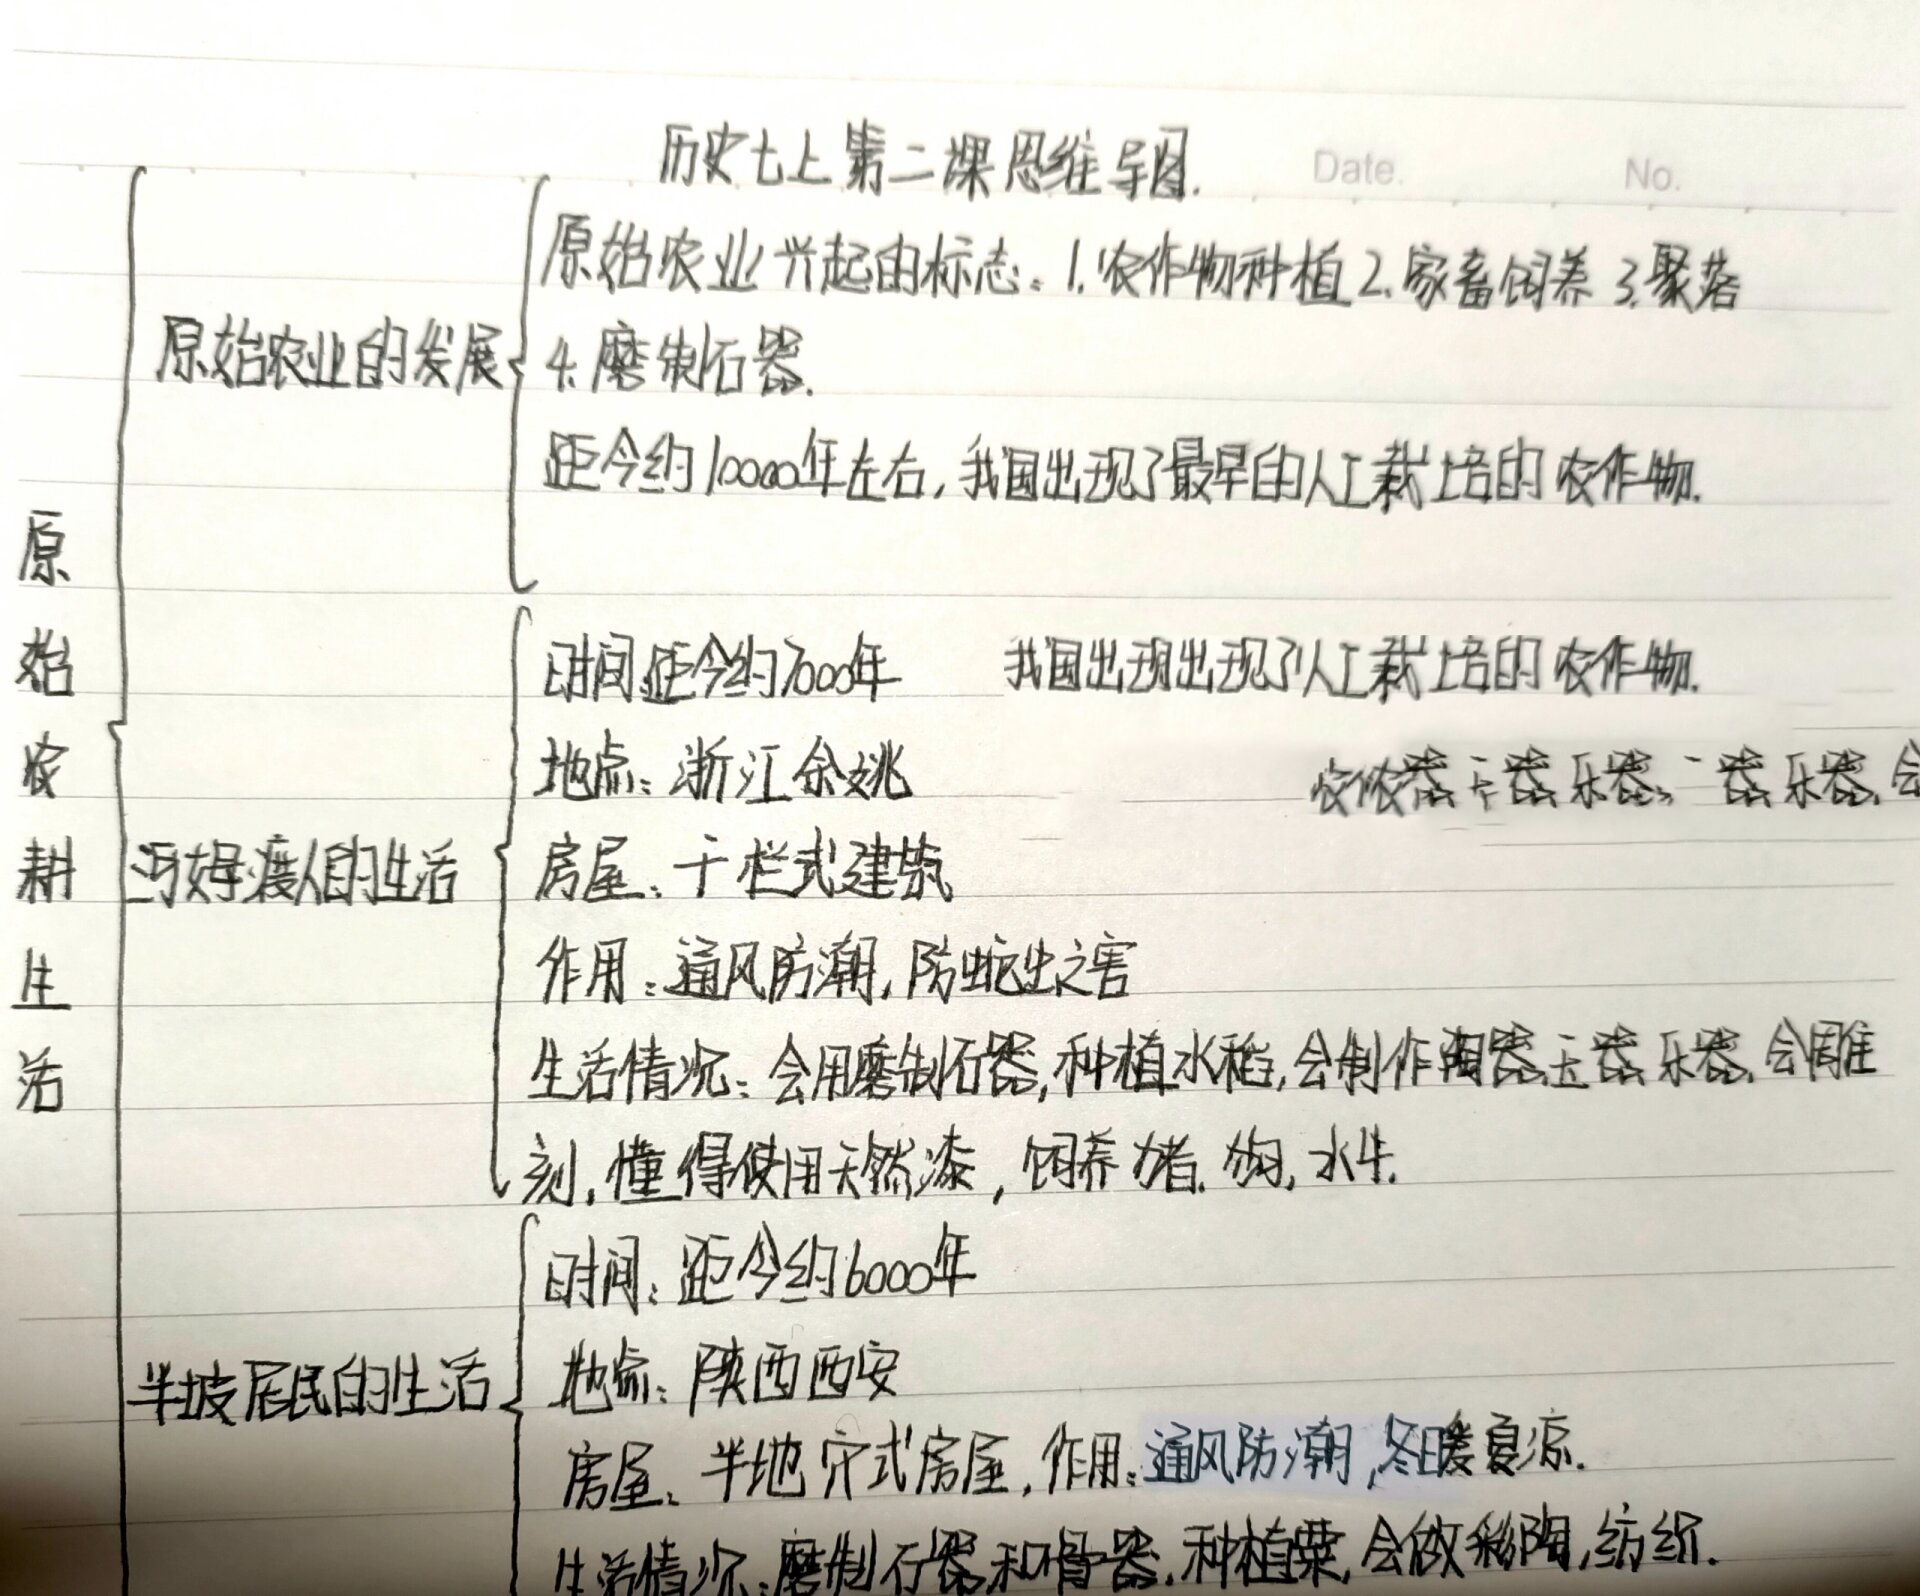 历史七上第二课思维导图.
Date.
No.
原始农耕生活
原始农业的发展
原始农业兴起的标志:1.农作物种植2.家畜饲养3.聚落
4.磨制石器.
距今约10000年左右,我国出现了最早的人工栽培的农作物.
河姆渡人的生活
时间:距今约7000年
我国出现出现了人工栽培的农作物.
地点:浙江余姚
器 乐器、 器 乐器.会
房屋:干栏式建筑
作用:通风防潮,防蛇虫之害
生活情况:会用磨制石器,种植水稻,会制作陶器.玉器.乐器.会雕
刻,懂得使用天然漆,饲养猪.狗,水牛.
半坡居民的生活
时间:距今约6000年
地点:陕西西安
房屋:半地穴式房屋,作用:通风防潮,冬暖夏凉.
生活情况:磨制石器和骨器,种植粟,会做彩陶,纺织.